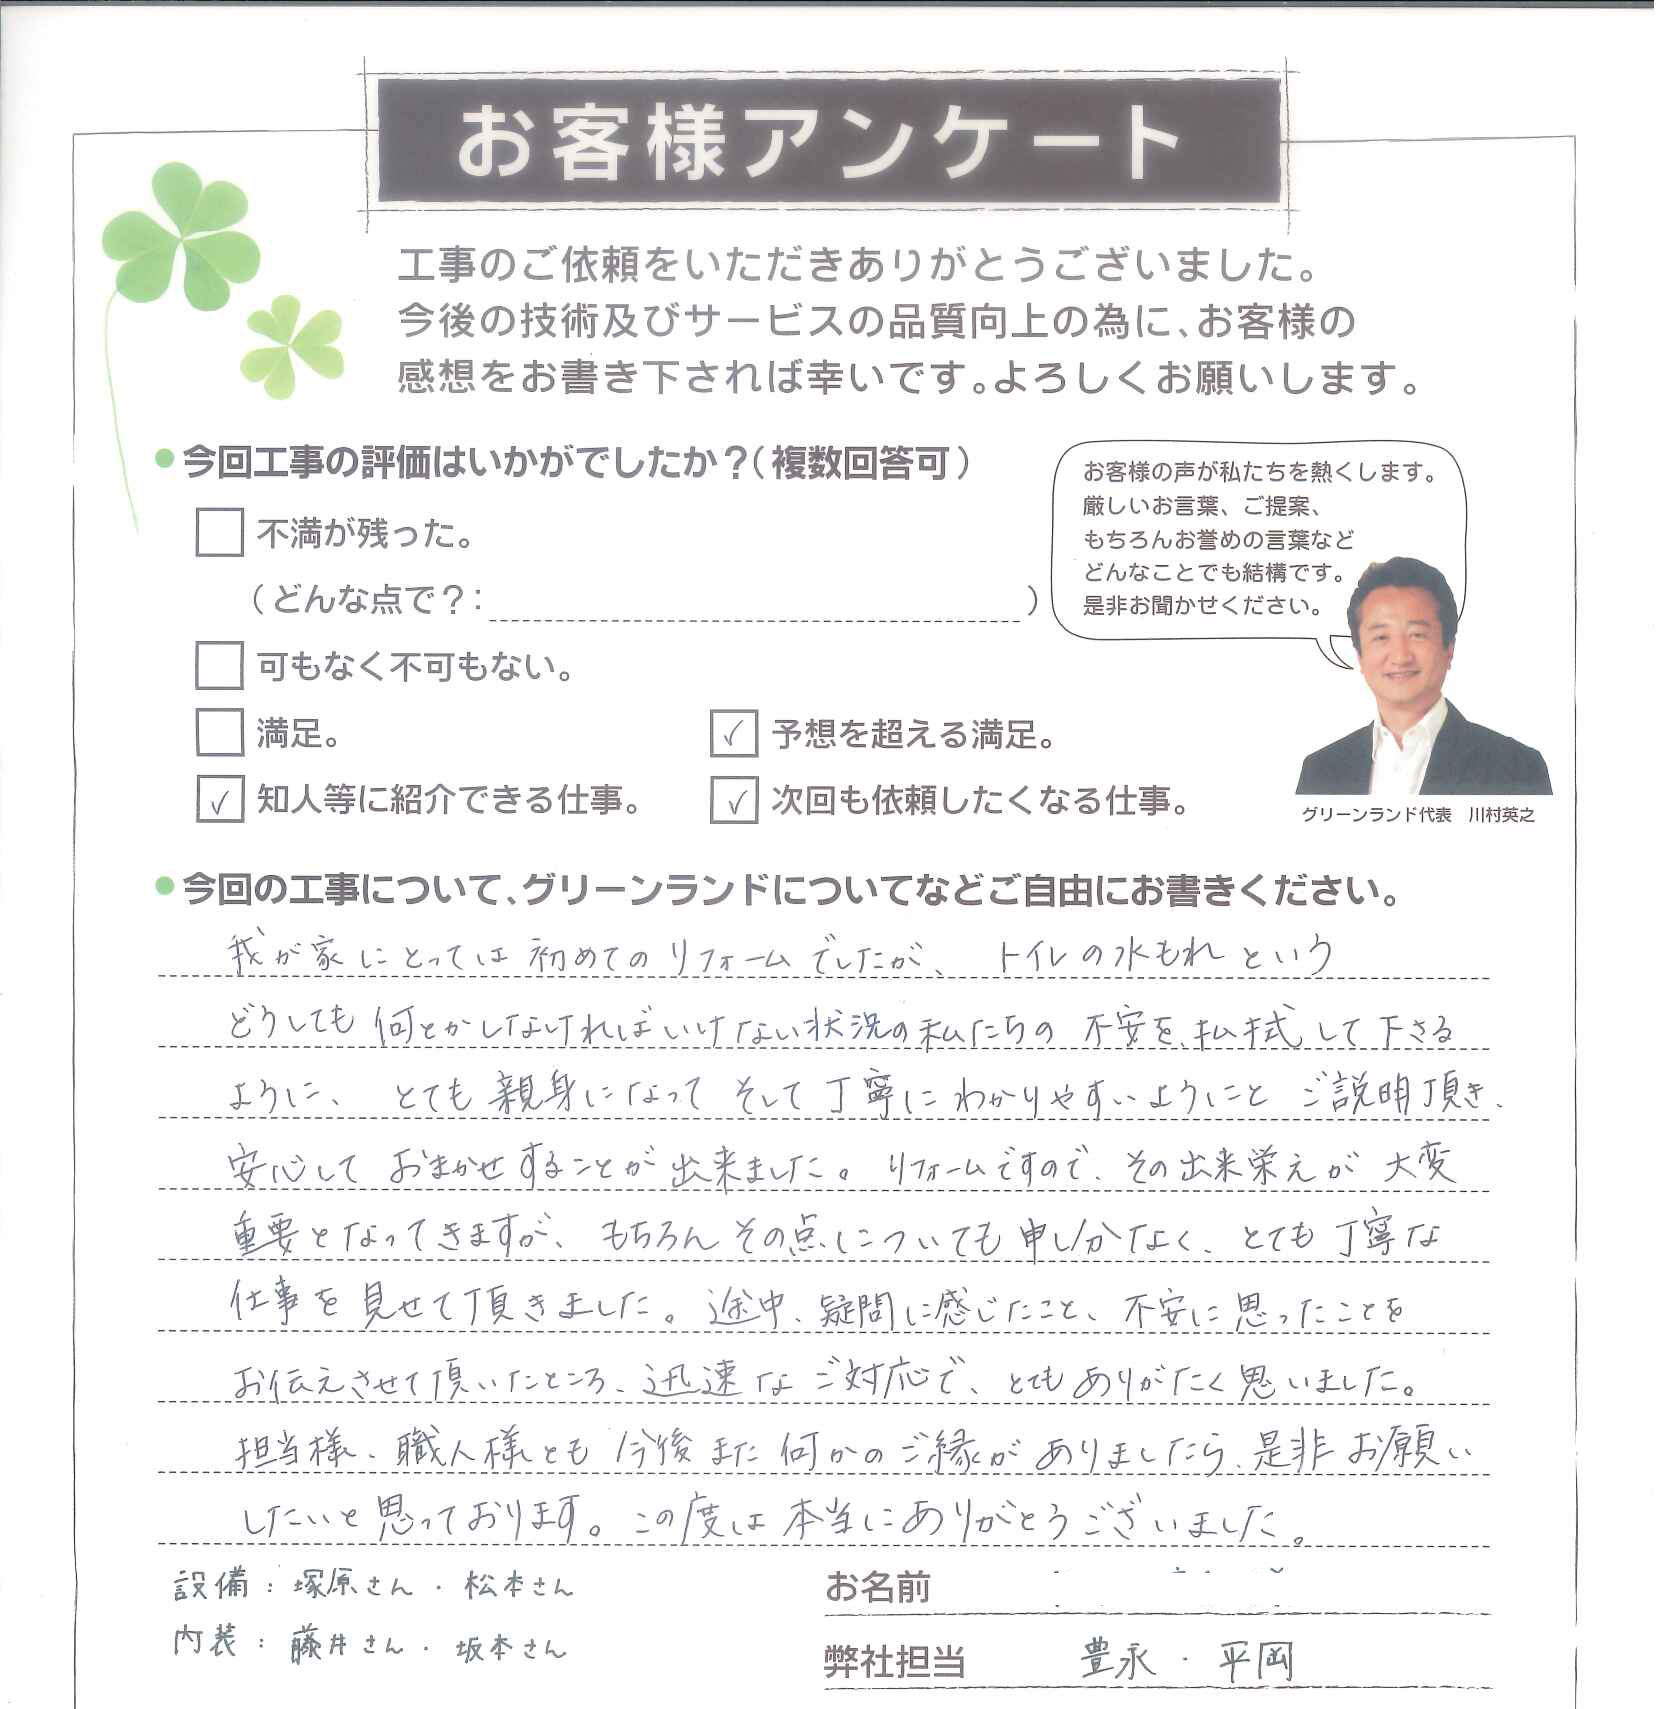 お客様アンケート
工事のご依頼をいただきありがとうございました。
今後の技術及びサービスの品質向上の為に、お客様の
感想をお書き下されば幸いです。よろしくお願いします。
今回工事の評価はいかがでしたか？（複数回答可）
不満が残った。
（どんな点で？：　）
可もなく不可もない。
満足。
✓ 予想を超える満足。
✓ 知人等に紹介できる仕事。
✓ 次回も依頼したくなる仕事。
お客様の声が私たちを熱くします。
厳しいお言葉、ご提案、
もちろんお誉めの言葉など
どんなことでも結構です。
是非お聞かせください。
グリーンランド代表　川村英之
今回の工事について、グリーンランドについてなどご自由にお書きください。
我が家にとっては初めてのリフォームでしたが、トイレの水もれという
どうしても何とかしなければいけない状況の私たちの不安を、払拭して下さる
ように、とても親身になってそして丁寧にわかりやすいようにとご説明頂き、
安心しておまかせすることが出来ました。リフォームですので、その出来栄えが大変
重要となってきますが、もちろんその点についても申し分なく、とても丁寧な
仕事を見せて頂きました。途中、疑問に感じたこと、不安に思ったことを
お伝えさせて頂いたところ、迅速なご対応で、とてもありがたく思いました。
担当様、職人様とも今後また何かのご縁がありましたら、是非お願い
したいと思っております。この度は本当にありがとうございました。
設備：塚原さん・松本さん
内装：藤井さん・坂本さん
お名前
弊社担当　豊永・平岡